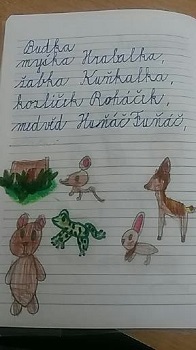 Budka
myška Hrabalka,
žabka Kuňkalka,
kozlíčik Roháčik,
medvěd Huňáč Fuňáč.